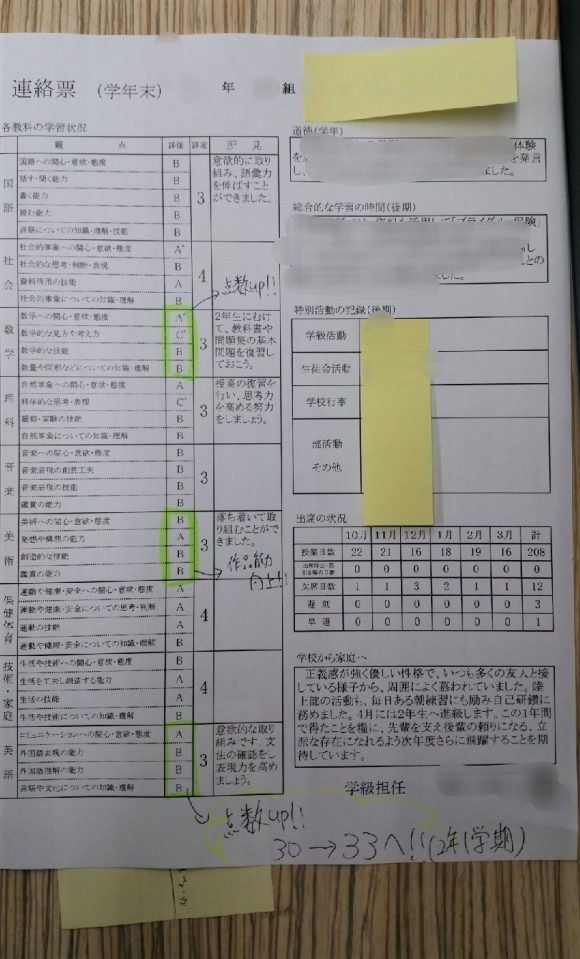 連絡票 (学年末) 年 組
各教科の学習状況
観 点 評価 評定 所見
国語
国語への関心・意欲・態度 B
話す・聞く能力 B
書く能力 B
読む能力 B
言語についての知識・理解・技能 B
3
意欲的に取り
組み、語彙力
を伸ばすこと
ができました。
社会
社会的事象への関心・意欲・態度 A°
社会的な思考・判断・表現 B
資料活用の技能 A
社会的事象についての知識・理解 B
4
点数up!!
数学
数学への関心・意欲・態度 A°
数学的な見方や考え方 C°
数学的な技能 B
数量や図形などについての知識・理解 B
3
2年生にむけ
て、教科書や
問題集の基本
問題を復習し
ておこう。
理科
自然事象への関心・意欲・態度 A
科学的な思考・表現 C°
観察・実験の技能 B
自然事象についての知識・理解 B
3
授業の復習を
行い、思考力
を高める努力
をしましよう。
音楽
音楽への関心・意欲・態度 B
音楽表現の創意工夫 B
音楽表現の技能 B
鑑賞の能力 B
3
美術
美術への関心・意欲・態度 B
発想や構想の能力 A
創造的な技能 B
鑑賞の能力 B
3
落ち着いて取
り組むことがで
きました。
作品能力
向上!!
保健体育
運動や健康・安全への関心・意欲・態度 A
運動や健康・安全についての思考・判断 A
運動の技能 A
運動や健康・安全についての知識・理解 B
4
技術・家庭
生活や技術への関心・意欲・態度 B
生活を工夫し創造する能力 A
生活の技能 A
生活や技術についての知識・理解 B
4
英語
コミュニケーションへの関心・意欲・態度 A
外国語表現の能力 B
外国語理解の能力 B
言語や文化についての知識・理解 B
3
意欲的な取り
組みです。文
法の確認をし
表現力を高め
ましょう。
点数up!!
30→33へ!!(2年1学期)
道徳(学年)
体験
を発言
ました。
総合的な学習の時間(後期)
特別活動の記録(後期)
学級活動
生徒会活動
学校行事
部活動
その他
出席の状況
10月 11月 12月 1月 2月 3月 計
授業日数 22 21 16 18 19 16 208
0 0 0 0 0 0 0
欠席日数 1 1 3 2 1 1 12
遅刻 0 0 0 0 0 0 3
早退 0 0 0 0 0 0 1
学校から家庭へ
正義感が強く優しい性格で、いつも多くの友人と接
している様子から、周囲によく慕われていました。陸
上部の活動も、毎日ある朝練習にも励み自己研鑽に
務めました。4月には2年生へ進級します。この1年間
で得たことを糧に、先輩を支え後輩の頼りになる、立
派な存在になれるよう次年度さらに飛躍することを期
待しています。
学級担任